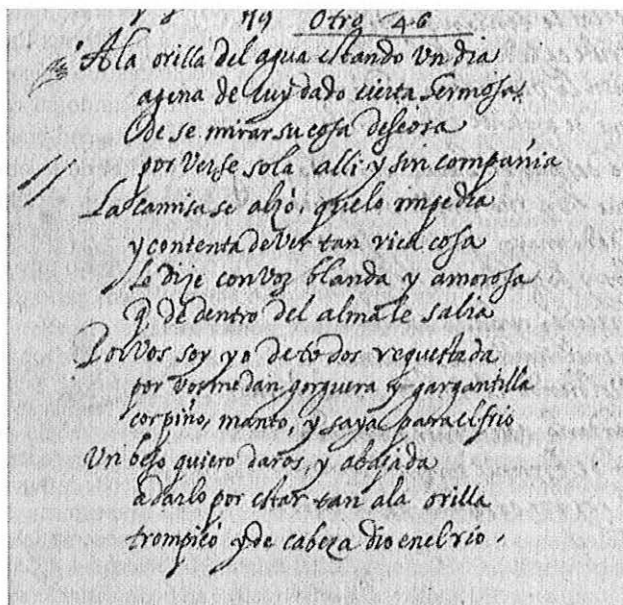 79 Otro 46
A la orilla del agua estando Un dia
agena de cuydado cierta hermosa
de se mirar su cosa deseosa
por Verse sola alli y sin compañia
La camisa se alzó, que lo impedia
y contenta de Ver tan rica cosa
Le dije con Voz blanda y amorosa
q̃ de dentro del alma le salia
Por Vos soy yo de todos requestada
por vos me dan gorguera y gargantilla
corpiño, manto, y saya para el frio
Un beso quiero daros, y abajada
a darlo por estar tan a la orilla
trompicó y de cabeza dio en el rio.